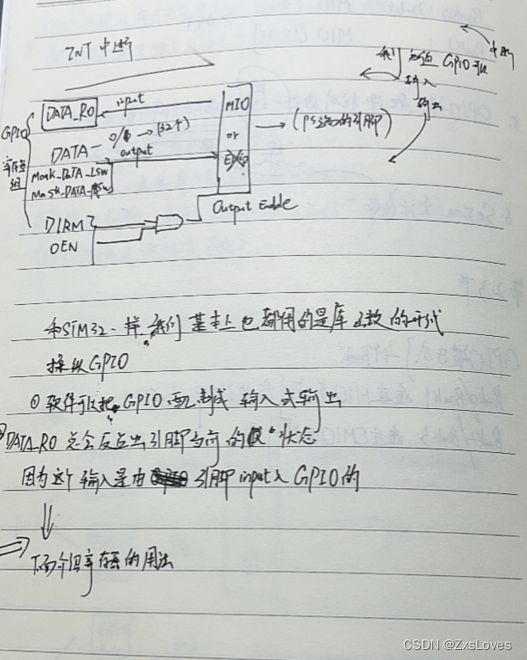 INT 中断
中断
我们 GPIO
输入
输出
GPIO
寄存器组
DATA_RO
input
MIO
or
EMIO
(PS端的引脚)
DATA
0/1 → (32个)
output
Mask_DATA_LSW
Mask_DATA_MSW
DIRM
OEN
Output Enable
和STM32一样,我们基本上也都用的是库函数的形式
操纵GPIO
① 软件可以把GPIO配制成 输入或输出
DATA_RO 总会反应出引脚当前的 状态
因为这个输入是由 引脚 input入 GPIO的
寄存器的用法
CSDN @ZxsLoves